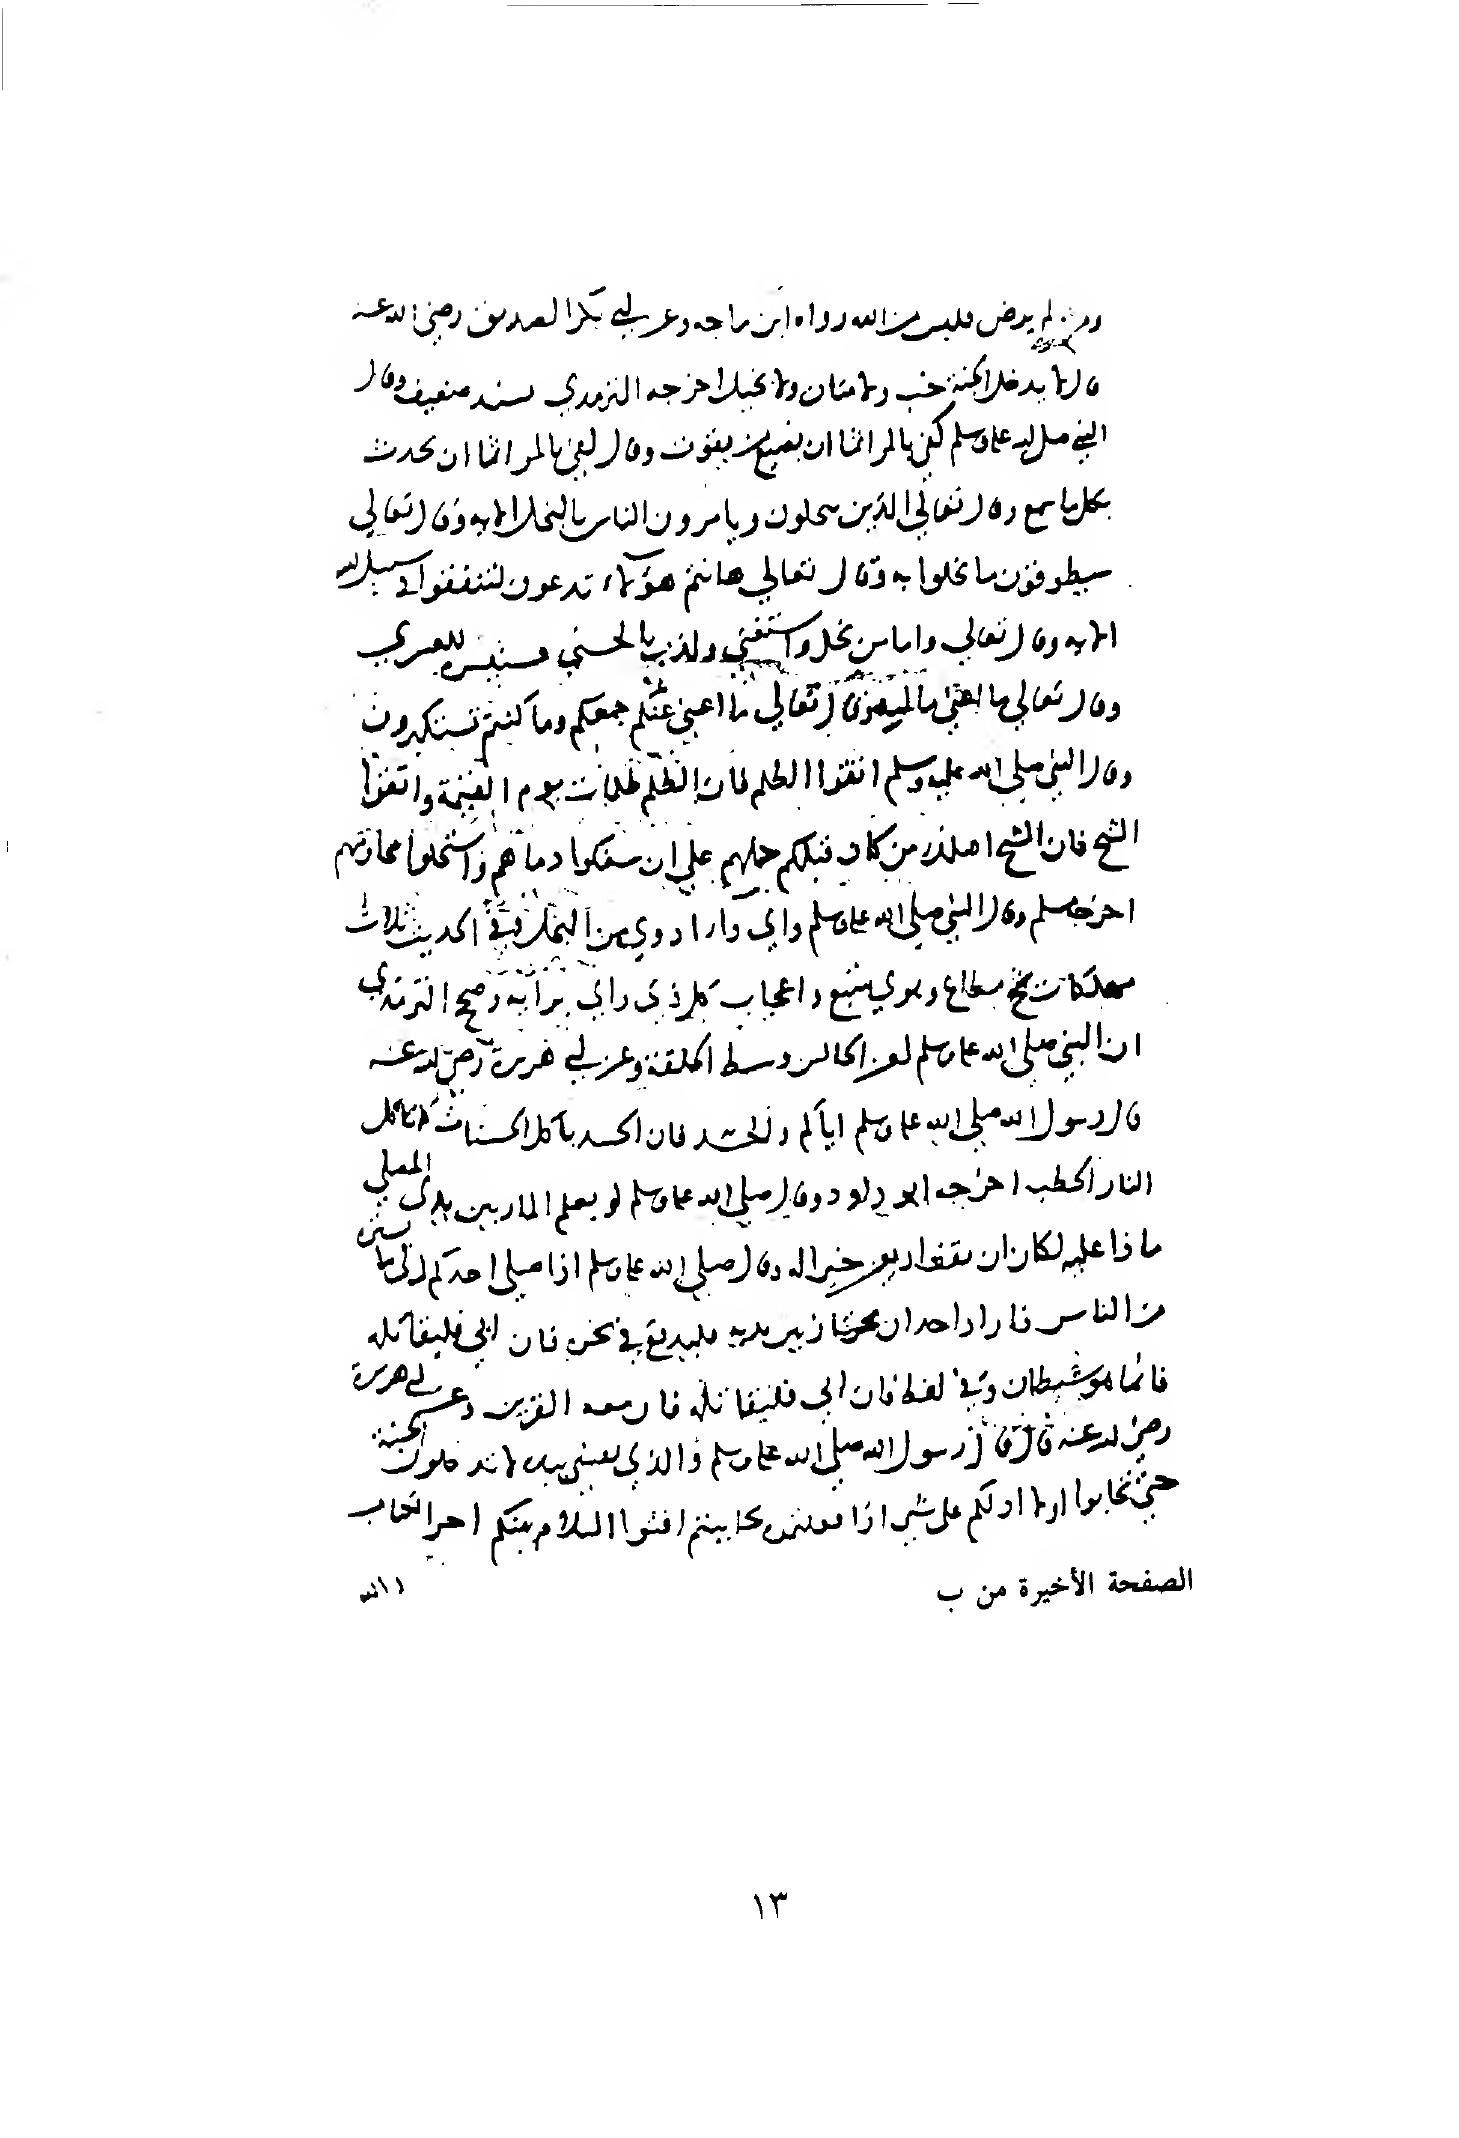 ومن لم يرض فليس من الله رواه ابن ماجه وعن ابي بكر الصديق رضي الله عنه
قال لا يدخل الجنة خب ولا منان ولا بخيل اخرجه الترمذي بسند ضعيف وقال
النبي صلى الله عليه وسلم كفى بالمرء اثما ان يضيع من يقوت وقال كفى بالمرء اثما ان يحدث
بكل ما سمع وقال تعالي الذين يبخلون ويامرون الناس بالبخل الايه وقال تعالي
سيطوقون ما بخلوا به وقال تعالي هانتم هؤلاء تدعون لتنفقوا في سبيل الله
الايه وقال تعالي واما من بخل واستغني وكذب بالحسني فسنيسره للعسري
وقال تعالي ما اغني عني ماليه وقال تعالي ما اغني عنكم جمعكم وما كنتم تستكبرون
وقال النبي صلي الله عليه وسلم اتقوا الظلم فان الظلم ظلمات يوم القيمة واتقوا
الشح فان الشح اهلك من كان قبلكم حملهم علي ان سفكوا دماهم واستحلوا محارمهم
اخرجه مسلم وقال النبي صلي الله عليه وسلم واي داء ادوي من البخل وفي الحديث ثلاث
مهلكات شح مطاع وهوي متبع واعجاب كل ذي راي برايه وصح الترمذي
ان النبي صلي الله عليه وسلم لعن الجالس وسط الحلقة وعن ابي هريرة رضي الله عنه
قال رسول الله صلي الله عليه وسلم اياكم والحسد فان الحسد ياكل الحسنات كما تاكل
النار الحطب اخرجه ابو داود وقال صلي الله عليه وسلم لو يعلم المار بين يدي المصلي
ماذا عليه لكان ان يقف اربعين خير اله وقال صلي الله عليه وسلم اذا صلي احدكم الي ما يستره
من الناس فاراد احد ان يجتاز بين يديه فليدفع في نحره فان ابي فليقاتله
فانما هو شيطان وفي لفظ فان ابي فليقاتله فان معه القرين وعن ابي هريرة
رضي الله عنه قال قال رسول الله صلي الله عليه وسلم والذي نفسي بيده لا تدخلون الجنة
حتي تحابوا اولا ادلكم علي شي اذا فعلتموه تحاببتم افشوا السلام بينكم اخر الكتاب
الصفحة الأخيرة من ب
١٣